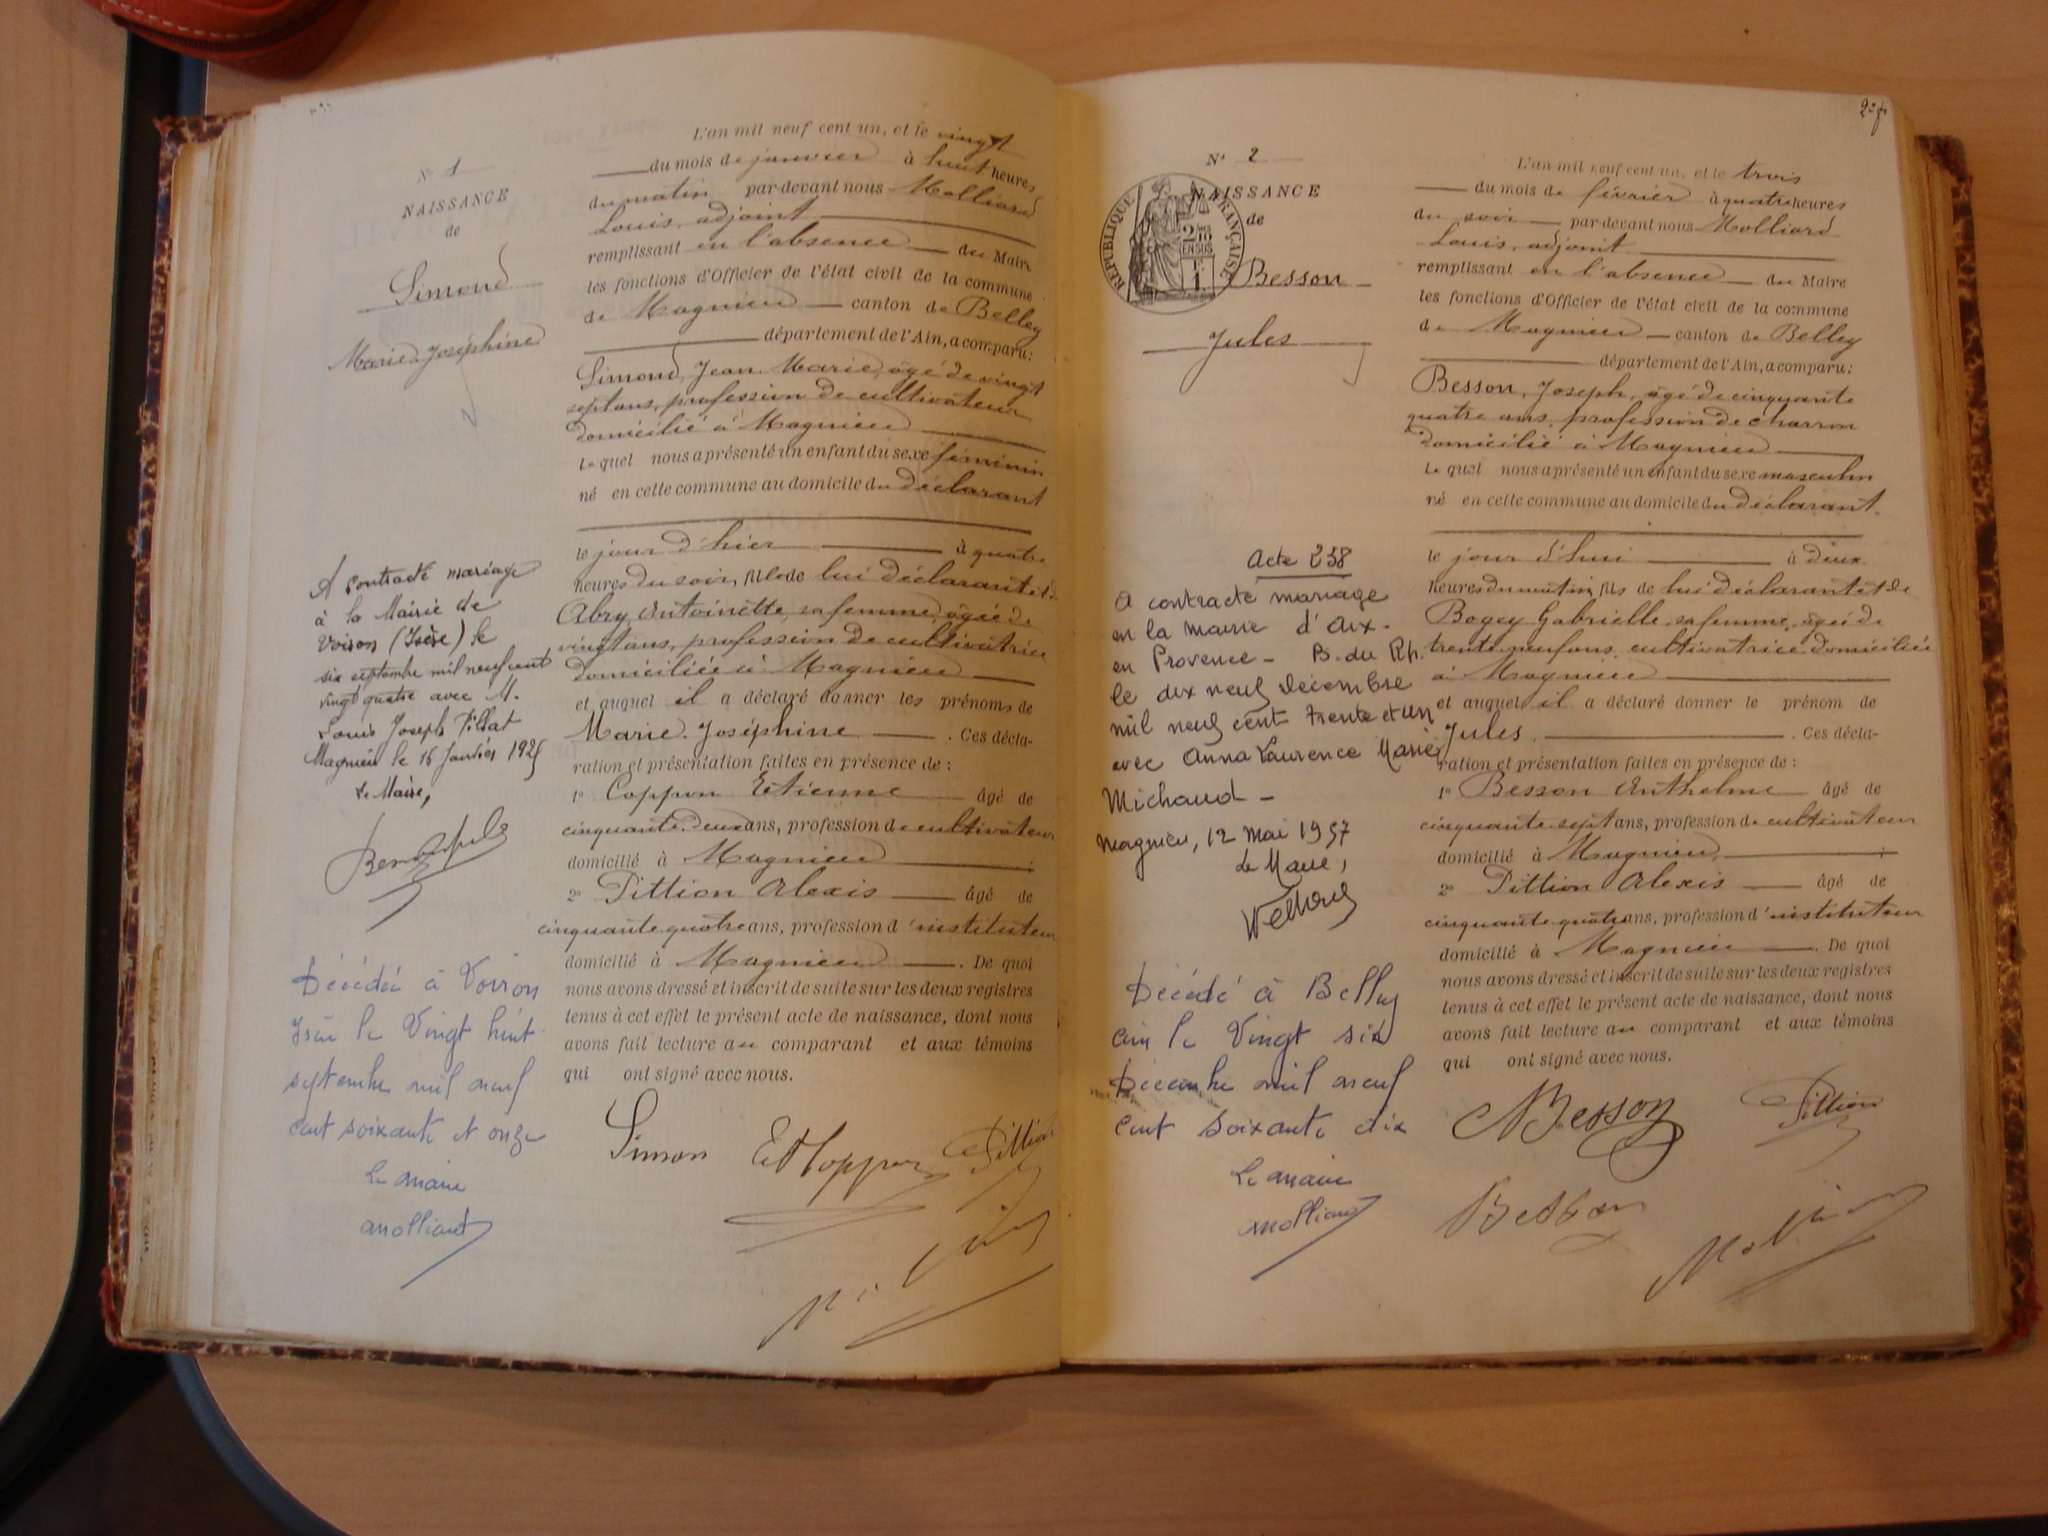 N° 1
NAISSANCE
de
Simond
Marie Joséphine
A contracté mariage
à la Mairie de
Voiron (Isère) le
six septembre mil neuf cent
vingt quatre avec M.
Louis Joseph Pillat
Magnieu le 16 Janvier 1925
Le Maire,
Décédée à Voiron
Isère le Vingt huit
septembre mil neuf
cent soixante et onze
Le maire
Molliard
L'an mil neuf cent un, et le vingt
du mois de janvier à huit heures
du matin par-devant nous Molliard
Louis, adjoint
remplissant en l'absence du Maire
les fonctions d'Officier de l'état civil de la commune
de Magnieu canton de Belley
département de l'Ain, a comparu:
Simond, Jean Marie, âgé de vingt
sept ans, profession de cultivateur
domicilié à Magnieu
Lequel nous a présenté un enfant du sexe féminin
né en cette commune au domicile du déclarant
le jour d'hier à quatre
heures du soir, fille de lui déclarant et de
Abry Antoinette, sa femme, âgée de
vingt ans, profession de cultivatrice
domiciliée à Magnieu
et auquel il a déclaré donner les prénoms de
Marie Joséphine. Ces décla-
ration et présentation faites en présence de :
1° Coppon Etienne âgé de
cinquante deux ans, profession de cultivateur
domicilié à Magnieu ;
2° Pittion Alexis âgé de
cinquante quatre ans, profession d'instituteur
domicilié à Magnieu. De quoi
nous avons dressé et inscrit de suite sur les deux registres
tenus à cet effet le présent acte de naissance, dont nous
avons fait lecture au comparant et aux témoins
qui ont signé avec nous.
Simon Et Coppon Pittion
N° 2
NAISSANCE
de
RÉPUBLIQUE FRANÇAISE
2/10 EN SUS
Besson
Jules
Acte 258
A contracté mariage
en la mairie d'Aix-
en Provence - B. du Rh.
le dix neuf décembre
mil neuf cent trente et un
avec Anna Laurence Marie
Michaud -
Magnieu, 12 mai 1957
Le Maire,
Décédé à Belley
ain le Vingt six
Décembre mil neuf
cent soixante dix
Le maire
Molliard
L'an mil neuf cent un, et le trois
du mois de février à quatre heures
du soir par-devant nous Molliard
Louis, adjoint
remplissant en l'absence du Maire
les fonctions d'Officier de l'état civil de la commune
de Magnieu canton de Belley
département de l'Ain, a comparu:
Besson, Joseph, âgé de cinquante
quatre ans, profession de charron
domicilié à Magnieu
Lequel nous a présenté un enfant du sexe masculin
né en cette commune au domicile du déclarant.
le jour d'hui à deux
heures du matin, fils de lui déclarant et de
Bogey Gabrielle, sa femme, âgée de
trente neuf ans, cultivatrice domiciliée
à Magnieu
et auquel il a déclaré donner le prénom de
Jules. Ces décla-
ration et présentation faites en présence de :
1° Besson Anthelme âgé de
cinquante sept ans, profession de cultivateur
domicilié à Magnieu ;
2° Pittion Alexis âgé de
cinquante quatre ans, profession d'instituteur
domicilié à Magnieu. De quoi
nous avons dressé et inscrit de suite sur les deux registres
tenus à cet effet le présent acte de naissance, dont nous
avons fait lecture au comparant et aux témoins
qui ont signé avec nous.
Besson Pittion
Besson